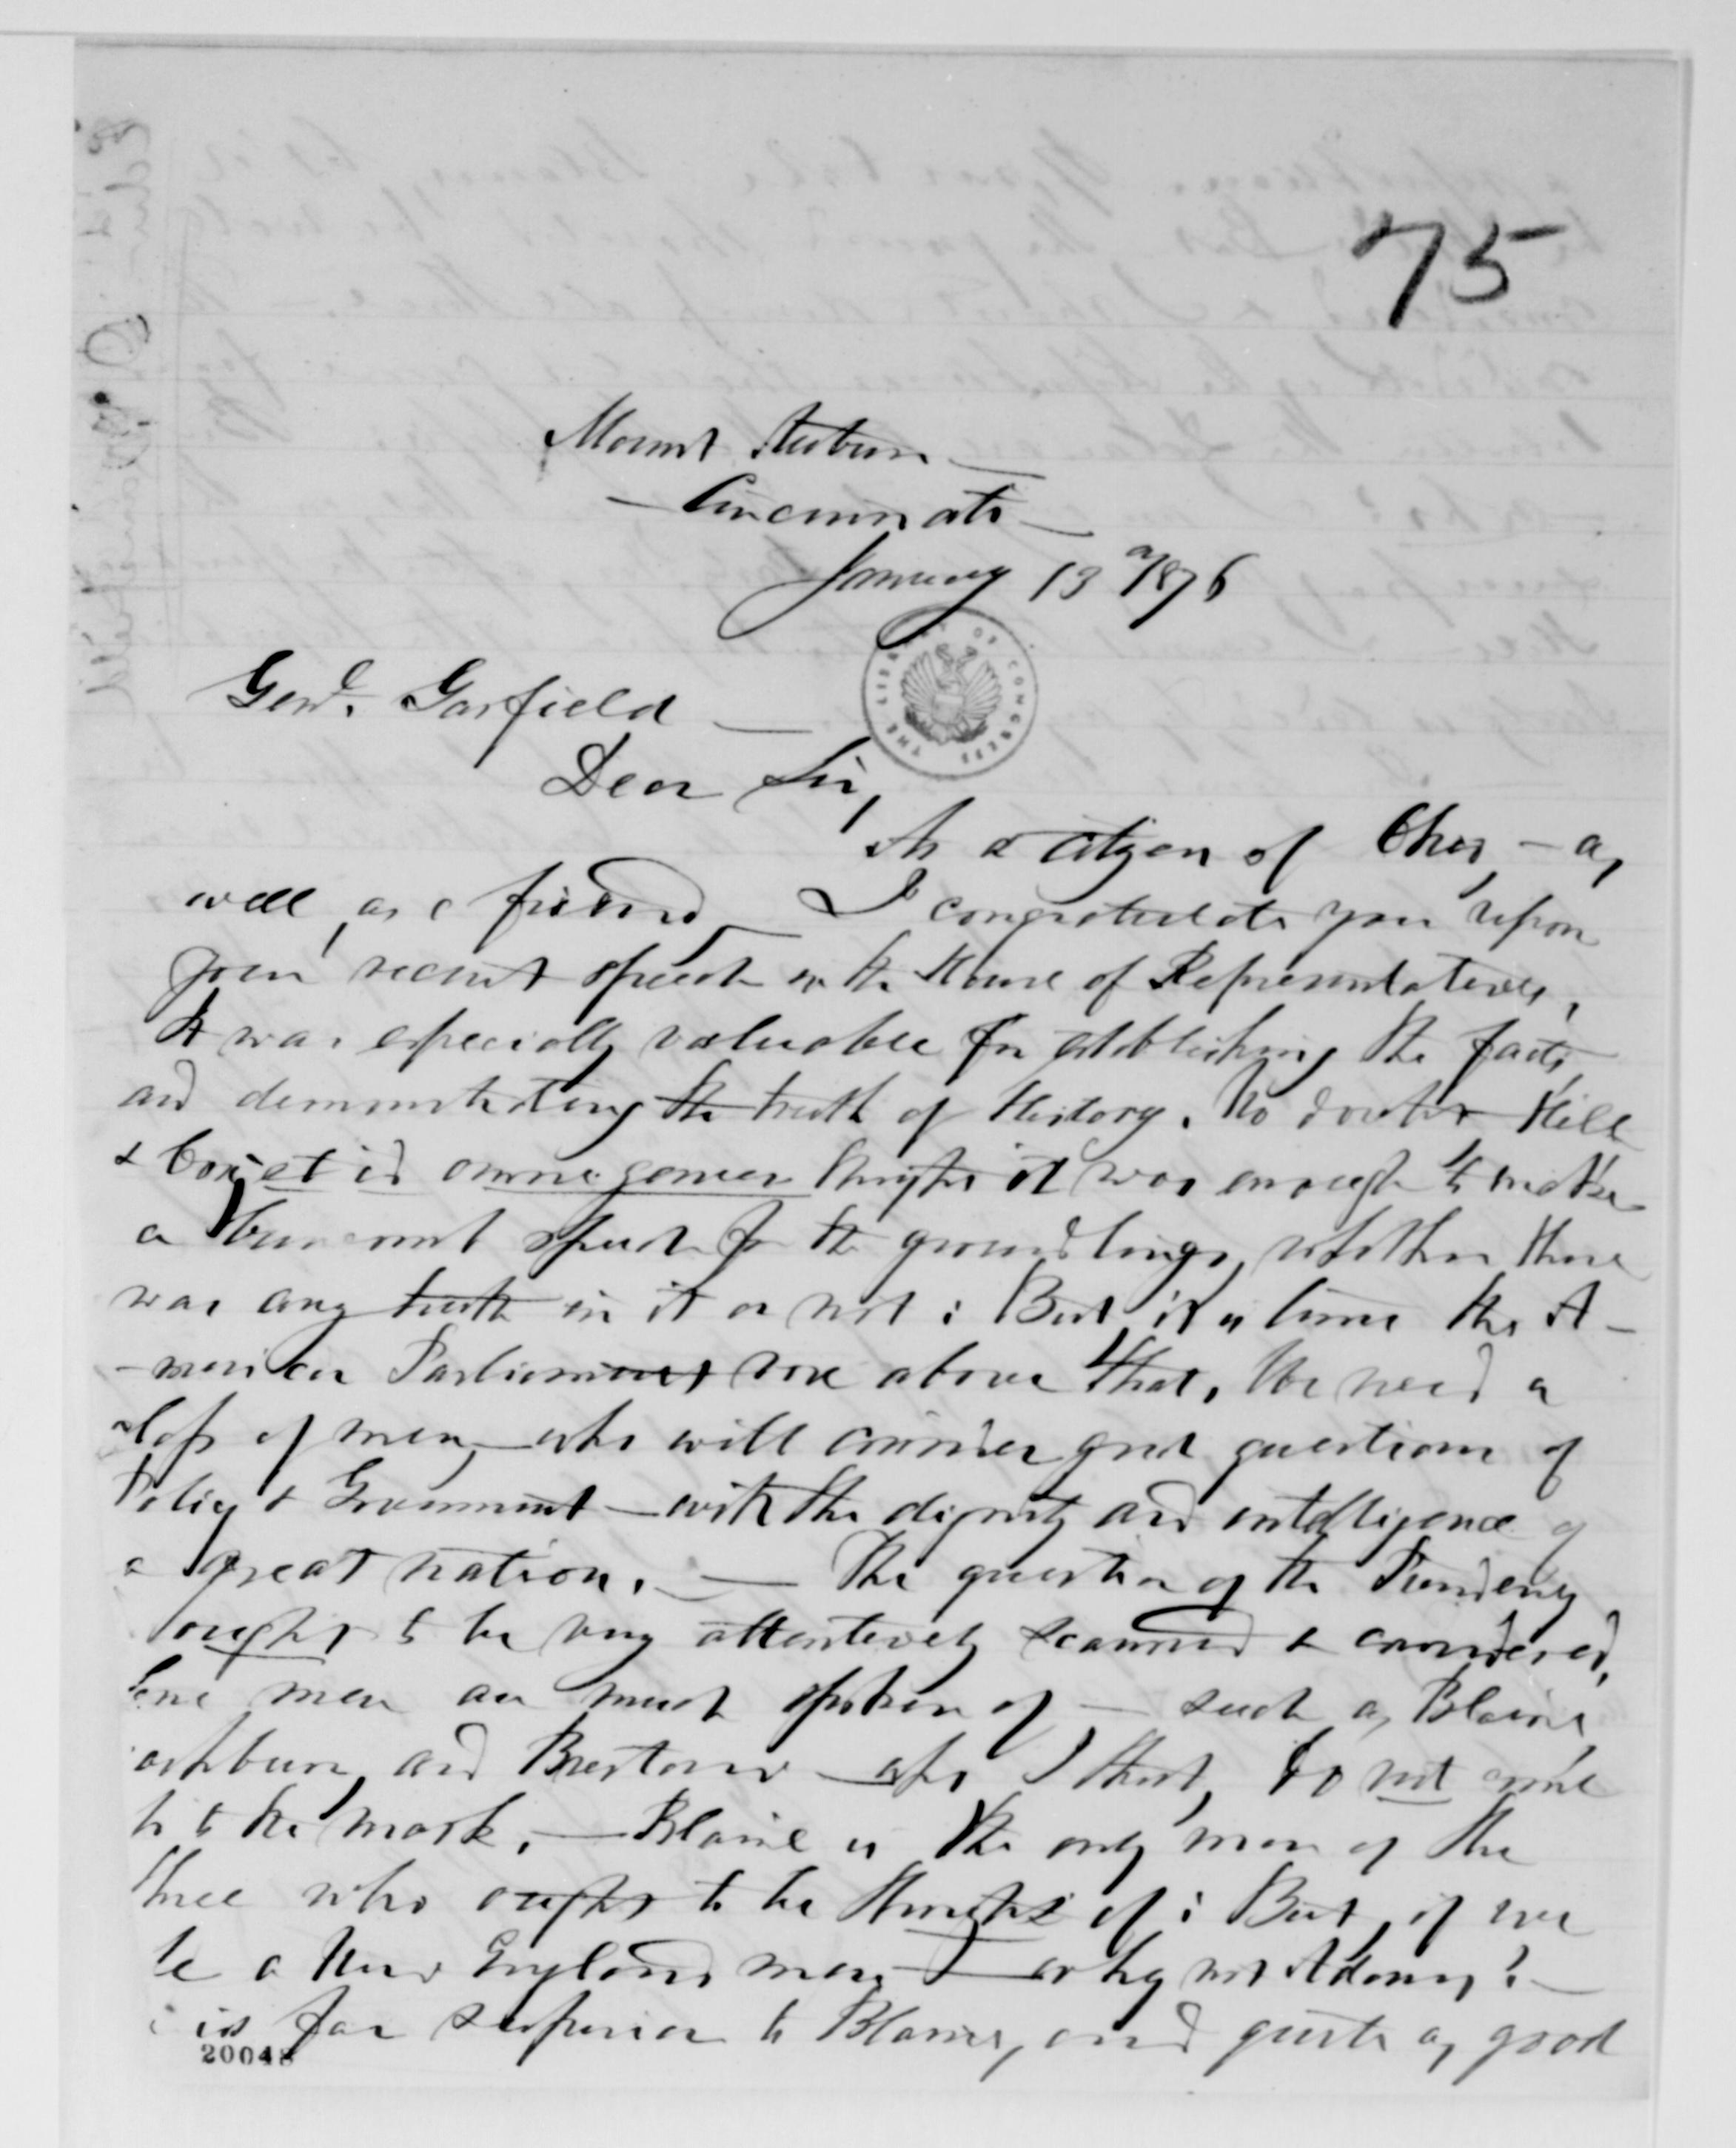 75
Mount Auburn —
— Cincinnati —
January 13 1876
THE LIBRARY OF CONGRESS
Genl. Garfield —
Dear Sir,
As a citizen of Ohio, — as
well as a friend, — I congratulate you upon
your recent speech in the House of Representatives,
It was especially valuable for establishing the facts,
and demonstrating the truth of History. No doubt Hill
& Cox, et id omne genus thought it was enough to make
a buncomb speech for the groundlings, whether there
was any truth in it or not: But it is time the A-
-merican Parliament rose above that. We need a
class of men, who will consider great questions of
Policy & Government — with the dignity and intelligence of
a great nation. — The question of the Presidency
ought to be very attentively scanned & considered,
Some men are much spoken of — such as Blaine,
ashburn, and Bristow — who I think, do not come
to the mark. — Blaine is the only man of the
three who ought to be thought of: But, if we
be a New England man — why not Adams? —
is far superior to Blaine, and quite as good
20048